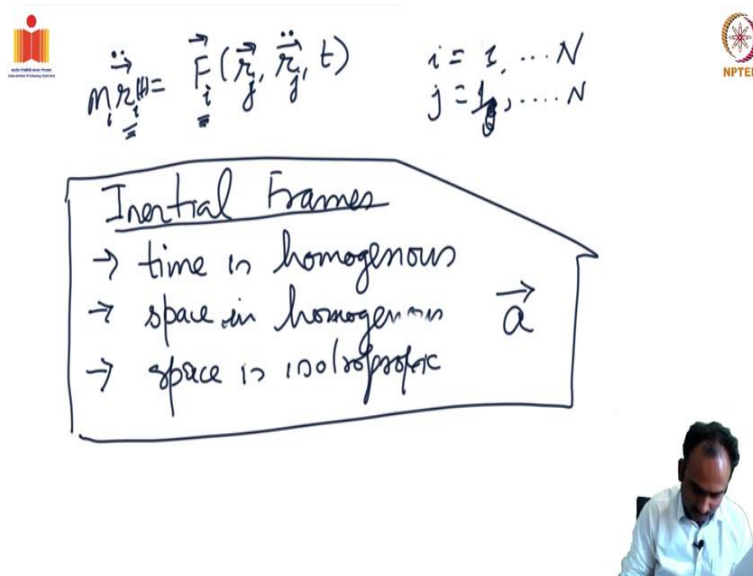 m_i \ddot{\vec{r}}_i(t) = \vec{F}_i (\vec{r}_j, \ddot{\vec{r}}_j, t) i = 1, ... N
j = 1, .... N
NPTEL
Inertial Frames
→ time is homogenous
→ space is homogenous
\vec{a}
→ space is isotropic